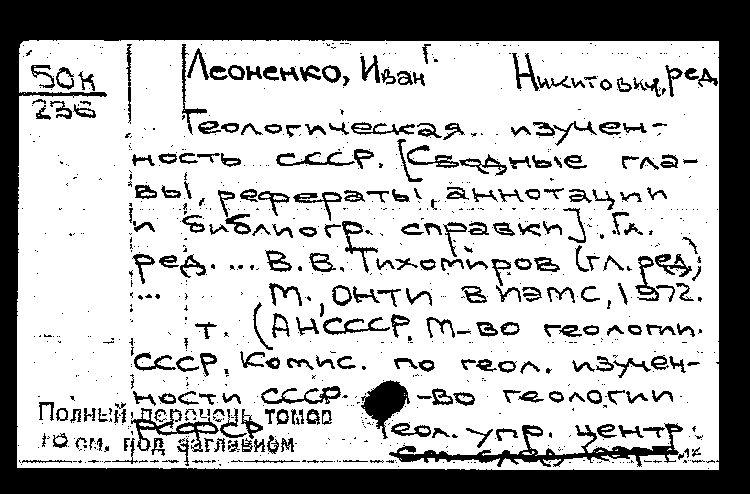 50к
236
Леоненко, Иван Никитович, ред.
Геологическая изучен-
ность СССР. [Сводные гла-
вы, рефераты, аннотации
и библиогр. справки]. Гл.
ред. ... В.В. Тихомиров (гл. ред.)
... М., ОНТИ ВИЭМС, 1972.
т. (АН СССР. М-во геологии
СССР. Комис. по геол. изучен-
ности СССР. -во геологии
РСФСР. Геол. упр. центр.
Полный перечень томов
см. под заглавием
см. след. карт.